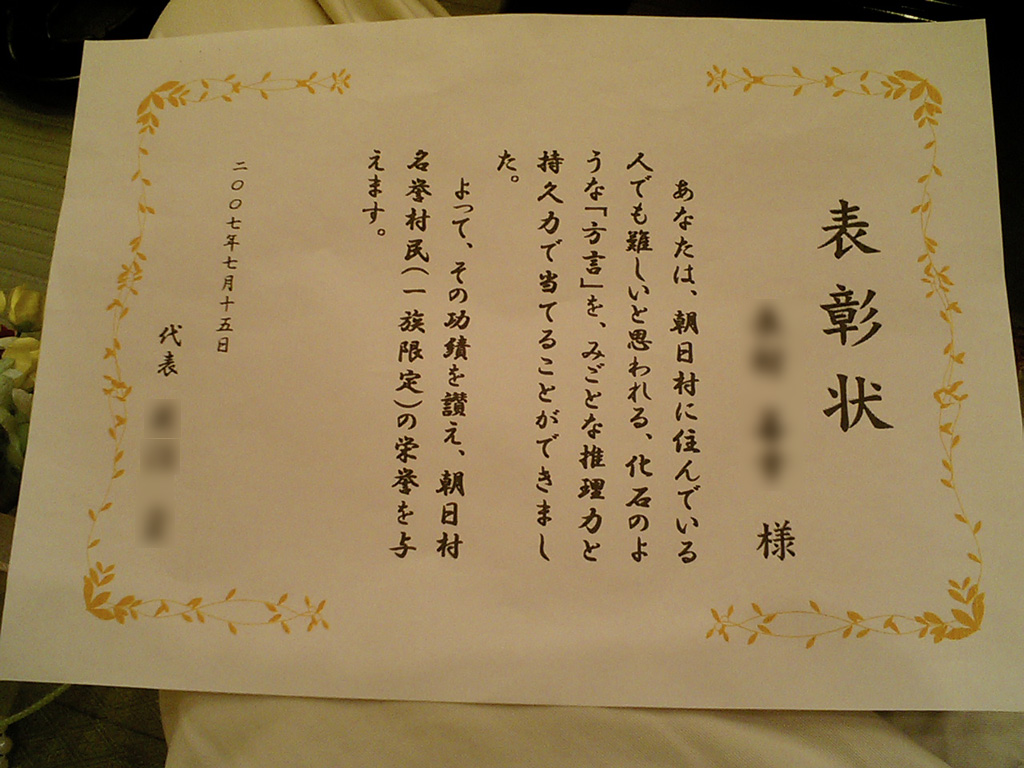 表彰状
様
あなたは、朝日村に住んでいる
人でも難しいと思われる、化石のよ
うな「方言」を、みごとな推理力と
持久力で当てることができまし
た。
よって、その功績を讃え、朝日村
名誉村民(一族限定)の栄誉を与
えます。
二〇〇七年七月十五日
代表